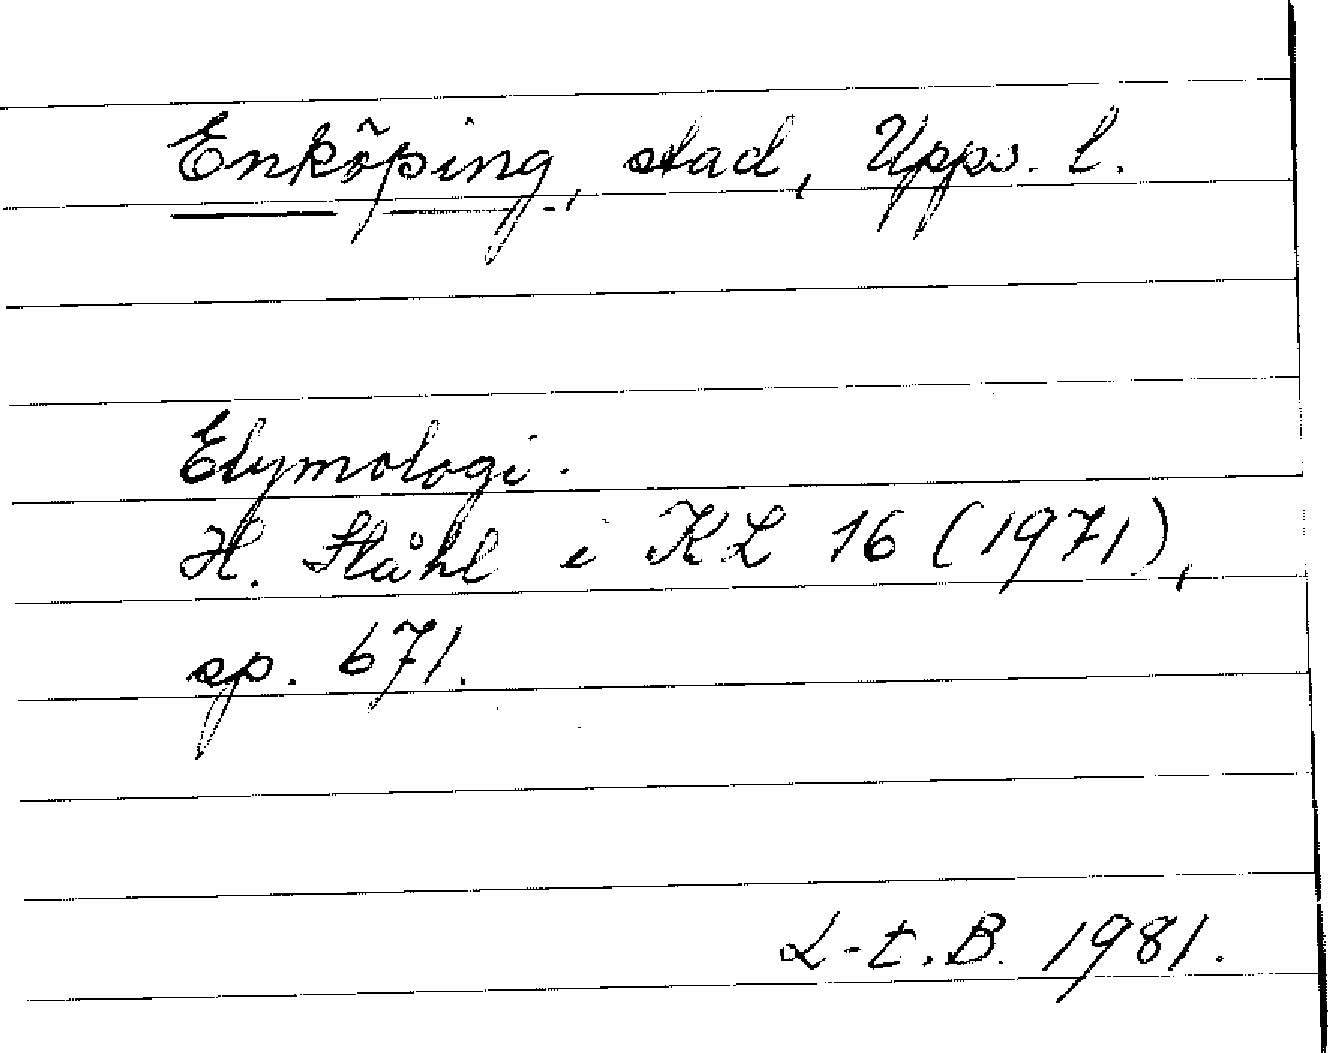 Enköping, stad, Upps. l.
Etymologi.
H. Ståhl i KL 16 (1971),
sp. 671.
L-t.B. 1981.